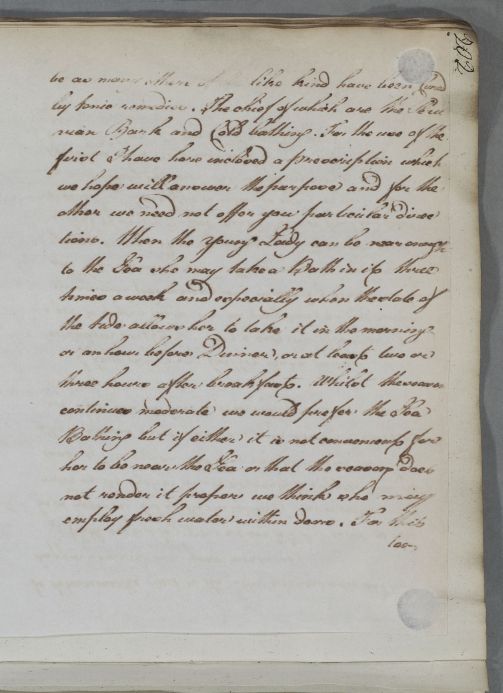 202
be as many others of the like kind have been cured
by tonic remedies. The chief of which are the Peru
vian Bark and Cold bathing. For the use of the
first I have here inclosed a prescription which
we hope will answer the purpose and for the
other we need not offer you particular direc
tions. When the young Lady can be near enough
to the Sea she may take a Bath in it three
times a week and especially when the state of
the tide allows her to take it in the morning
or an hour before Dinner, or at least two or
three hours after breakfast. Whilst the season
continues moderate we would prefer the Sea
Bathing but if either it is not convenient for
her to be near the Sea or that the season does
not render it proper we think she may
employ fresh water within doors. For this